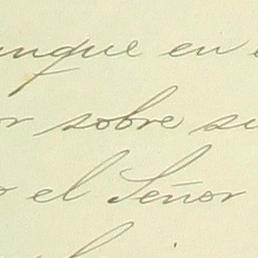 unque en
or sobre su
o el Señor